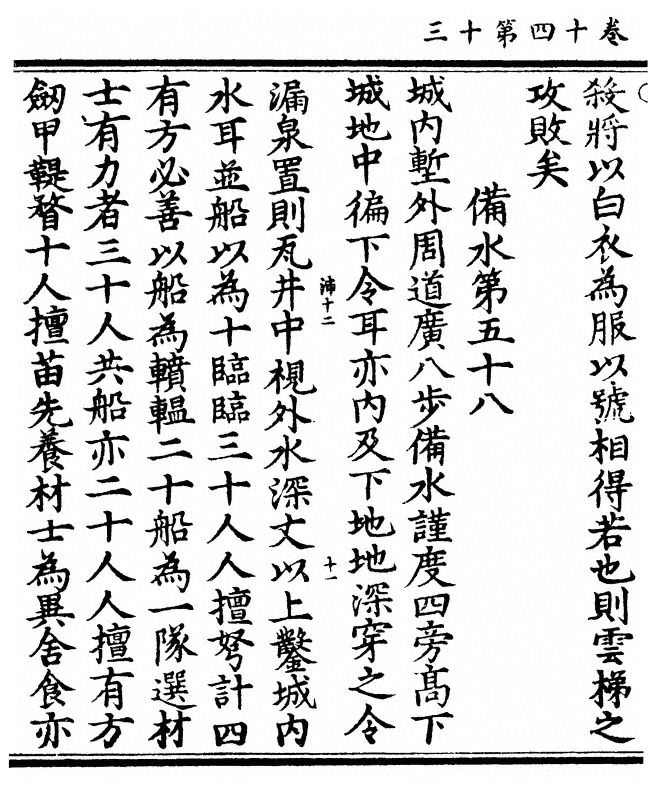 三十第四十卷
殺將以白衣為服以號相得若也則雲梯之
攻敗矣
備水第五十八
城內塹外周道廣八步備水謹度四旁高下
城地中徧下令耳亦內及下地地深穿之令
漏泉置則瓦井中視外水深丈以上鑿城內
沛十二
十一
水耳並船以為十臨臨三十人人擅弩計四
有方必善以船為轒轀二十船為一隊選材
士有力者三十人共船亦二十人人擅有方
劒甲鞮瞀十人人擅苗先養材士為異舍食亦